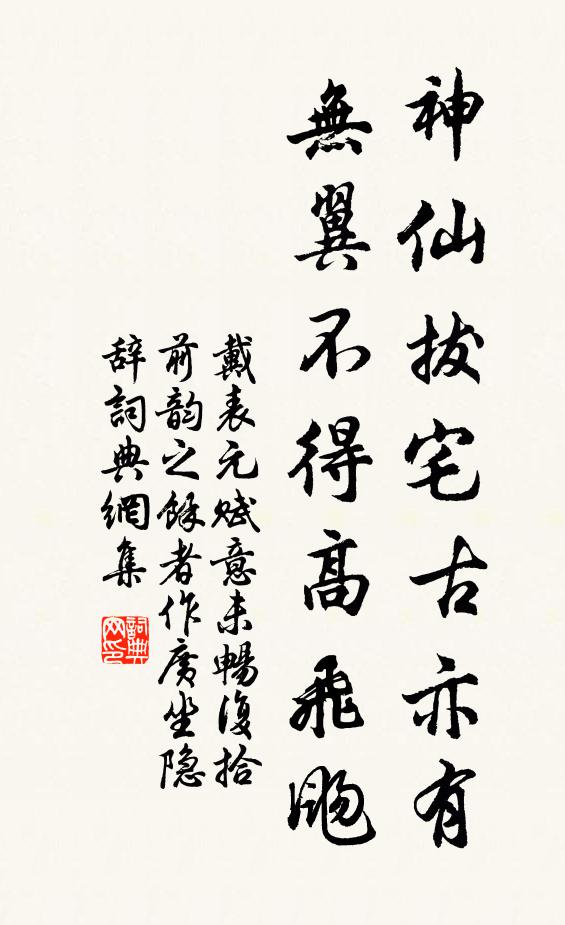 神仙拔宅古亦有
無翼不得高飛颺
戴表元賦意未暢復拾
前韵之餘者作廣坐隐
辞詞典網集
詞典网印